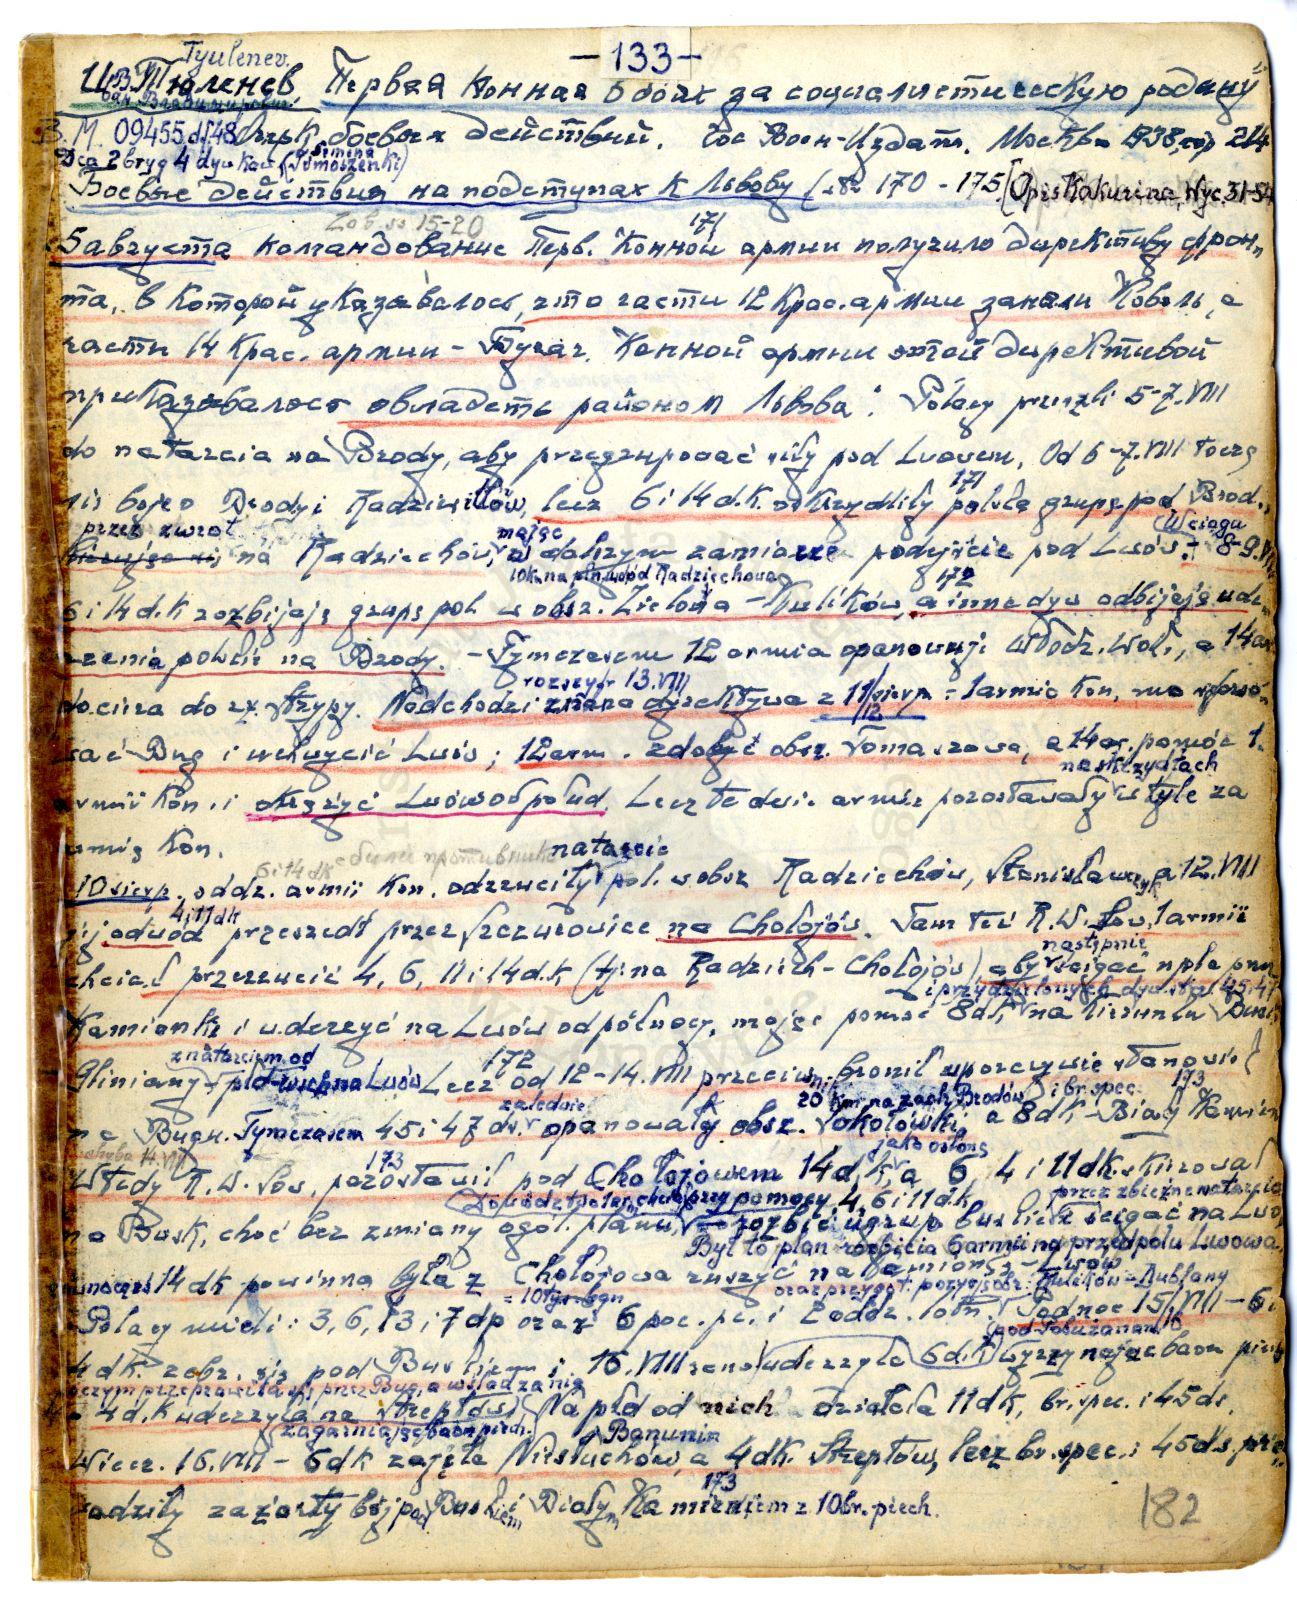 Tyulenev.
- 133 -
И.В. Тюленев Первая Конная в боях за социалистическую родину
В.М. 09455 df48 Очерк боевых действий. Гос. Воен-Издат. Москва 1938, стр 214
Dca 2 bryg 4 dyw kaw (Tymoszenki)
Боевые действия на подступах к Львову (стр 170 - 175 [Opis Kakurina, Wyc. 31-54
Zob. ss 15-20
171
5 августа командование Перв. Конной армии получило директиву фрон
та, в которой указывалось, что части 12 Крас. армии заняли Ковель, а
части 14 Крас. армии - Бучач. Конной армии этой директивой
приказывалось овладеть районом Львова". Polacy przeszli 5-7.VIII
do natarcia na Brody, aby przegrupować siły pod Lwowem. Od 6-7.VIII toczą
171
się boje o Brody i Radziwiłłów, lecz 6 i 14 d.k. oskrzydliły polską grupę pod Brod.
przez zwrot mając (W ciągu
na Radziechów, w dalszym zamiarze podejście pod Lwów. - 8-9.VIII
10 km na płn. wsch od Radziechowa 172
6 i 14 d.k rozbijają grupę pol. w obsz. Zielona - Kulików, a inne dyw odbijają ude
rzenia polskie na Brody. - Tymczasem 12 armia opanowuje Włodz. Woł., a 14 arm
rozszyfr 13.VIII
dociera do rz. Strypy. Nadchodzi znana dyrektywa z 11/12 sierp - 1 armia kon, ma sforso
wać Bug i uchwycić Lwów; 12 arm. zdobyć obsz. Tomaszowa, a 14 ar. pomóc 1.
na skrzydłach
armii Kon. i okrążyć Lwów od połud. Lecz te dwie armie pozostawały w tyle za
armią Kon.
6 i 14 dk били противника natarcie
10 sierp. oddz. armii Kon. odrzuciły pol. w obsz Radziechów, Stanisławczyk, a 12.VIII
4 i 11 dk
jej odwód przeszedł przez Szczurowice na Chołojów. Tam też R.W. Sow. 1 armii
następnie
chciał przerzucić 4, 6, 11 i 14 d.k (tj na Radziech - Chołojów) aby ścigać npla prze
i przydzielonych dyw. strz. 45, 47
Kamionkę i uderzyć na Lwów od północy, mając pomoc 8 dk, na kierunku Busk
z natarciem od 172
Gliniany - płd-wsch na Lwów. Lecz od 12-14.VIII przeciwnik bronił uporczywie stanowisk
zaledwie 20 km na zach Brodów i br. spec. 173
na Bugu. Tymczasem 45 i 47 ds. opanowały obsz. Sokołówki, a 8 dk - Biały Kamień
chyba 14.VIII 173 jako osłonę
Wtedy R.W. Sow. pozostawił pod Chołojowem 14 d.k, a 6, 4 i 11 dk. skierował
(Dowództwo 1 arm. chciało przy pomocy 4, 6 i 11 d.k. przez zbieżne natarcie
na Busk, choć bez zmiany ogól. planu - rozbić ugrup buskie i ścigać na Lwów
Był to plan rozbicia 6 armii na przedpolu Lwowa.
równocześ 14 dk powinna była z Chołojowa ruszyć na Kamionkę - Lwów
= 10 tys. bgn oraz przygot. pozycję obr. Kulików - Dublany
Polacy mieli: 3, 6, 13 i 7 dp oraz 6 poc. pc. i 2 oddz. lotn. Podnoc 15/VIII - 6 i
(pod Pobużanami)
4 dk. zebr. się pod Buskiem i 16.VIII rano uderzyła 6 d.k, wyrzynając baon piech
przy czym przeprawiła się przez Bug, a w ślad za nią
- 4 d.k uderzyła na Streptów. Na płd od nich działała 11 dk, br. spec. i 45 ds.
zagarniając baon piech. i Banunin
Wiecz. 16.VIII - 6 dk zajęła Niesłuchów, a 4 dk. Streptów, lecz br. spec. i 45 ds. pro
173
wadziły zażarty bój pod Buskiem i Białym Kamieniem z 10 br. piech.
182